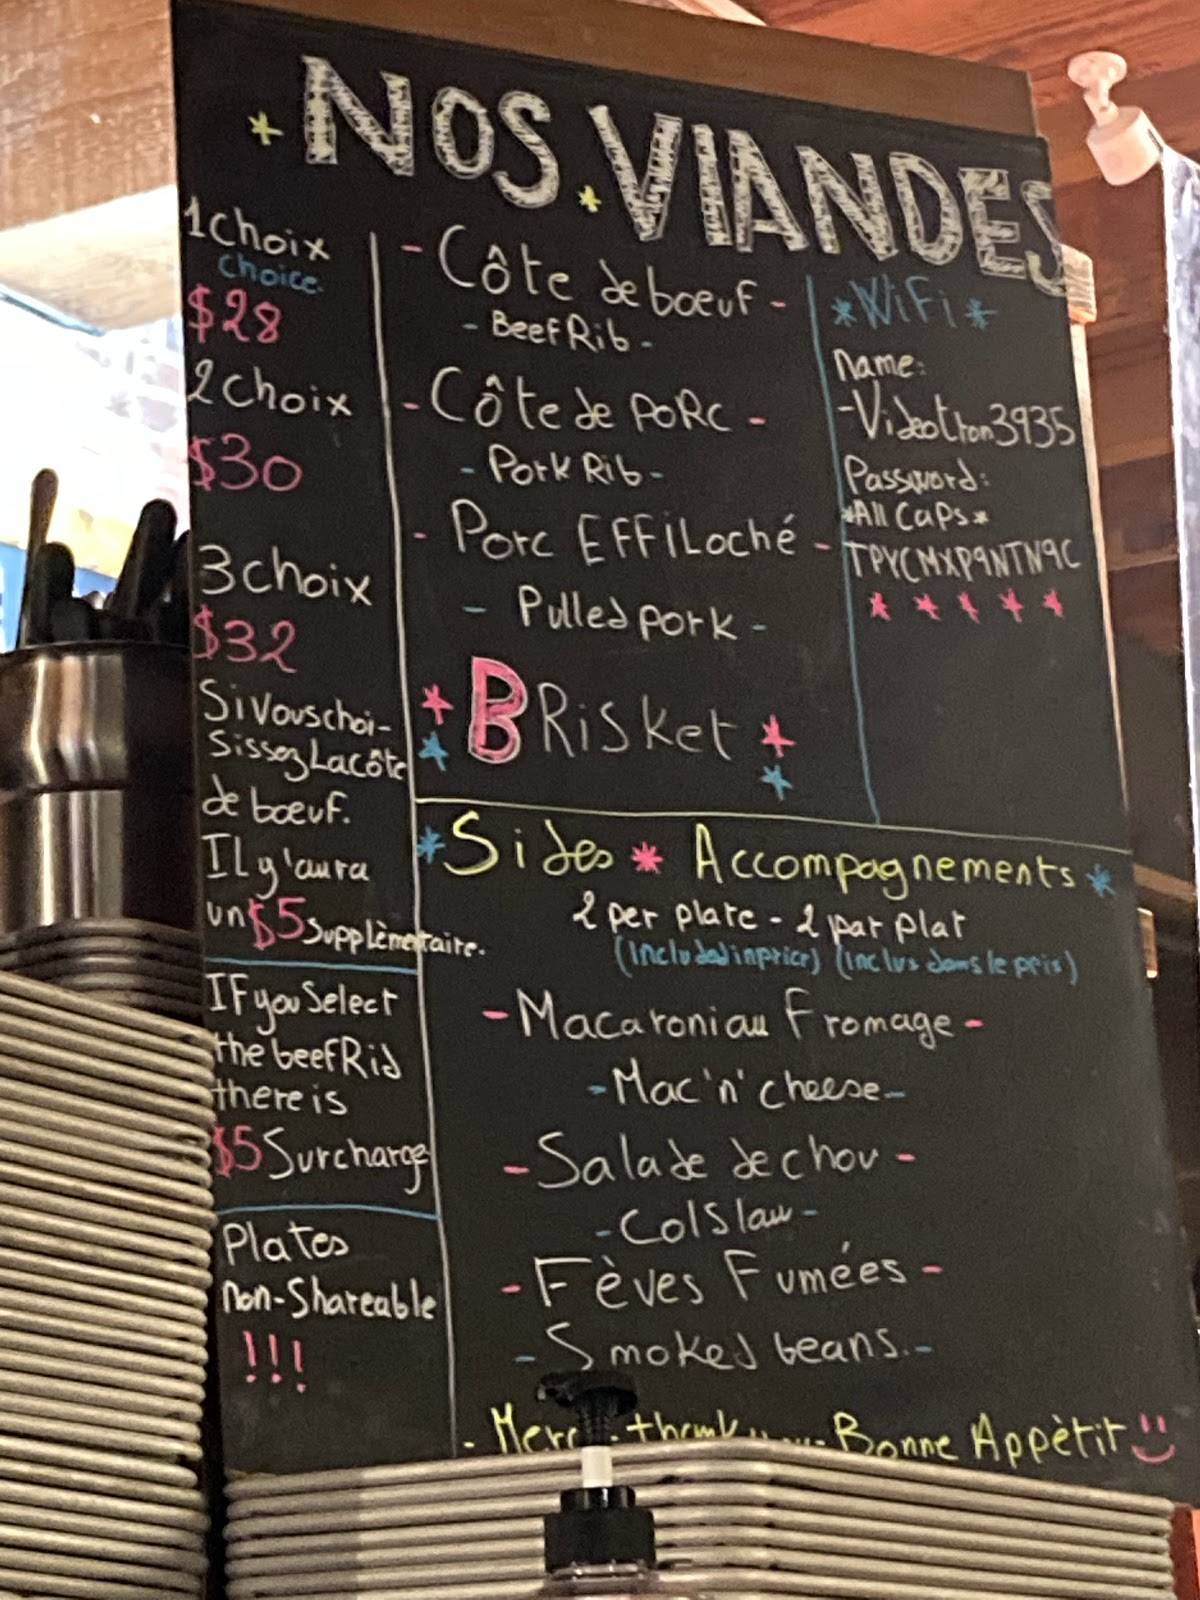 NOS VIANDES
1 choix
choice
$28
2 choix
$30
3 choix
$32
Si vous choi-
sissez La côte
de bœuf.
IL y'aura
un $5 supplèmentaire.
IF you Select
the beef Rib
there is
$5 Surcharge
Plates
non-Shareable
!!!
- Côte de bœuf -
- Beef Rib -
- Côte de PoRc -
- Pork Rib -
- Porc EFFiLoché -
- Pulled pork -
* BRisket *
* WiFi *
name:
- Videotron3935
Password:
*All Caps*
TPYCMXP9NTN9C
* Sides * Accompagnements *
2 per plate - 2 par plat
(Included in price) (inclus dans le prix)
- Macaroni au Fromage -
- Mac'n'cheese -
- Salade de chou -
- ColSlaw -
- Fèves Fumées -
- Smoked beans. -
- Merci - thank you - Bonne Appètit